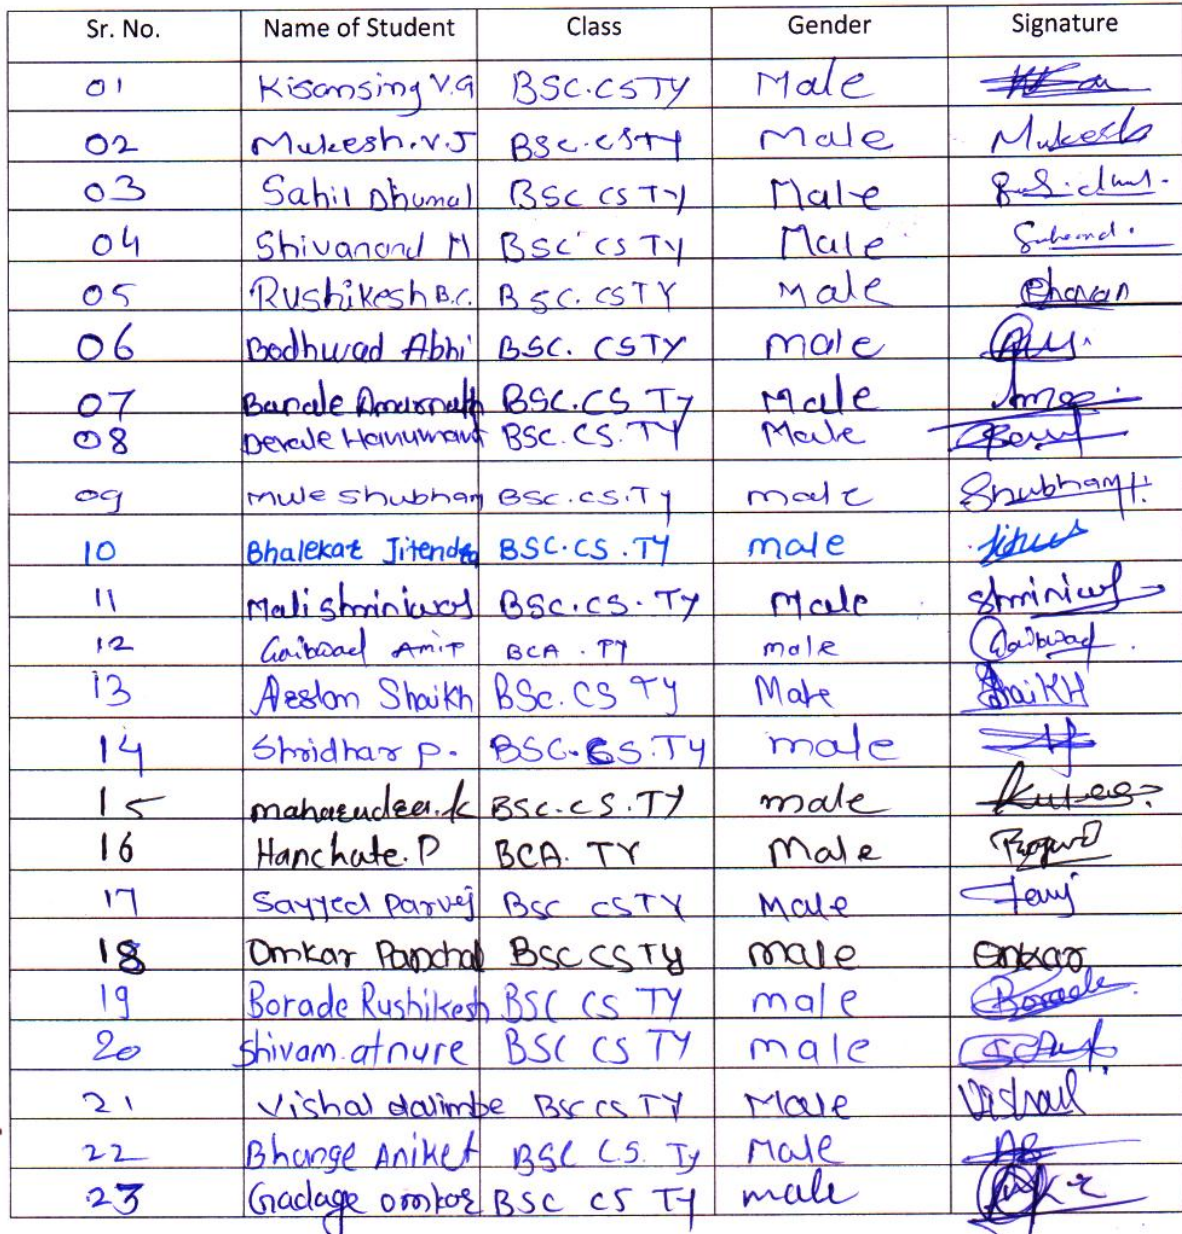 Sr. No. Name of Student Class Gender Signature
01 Kisansing V.G BSC.CSTY Male
02 Mukesh.V.J BSc.CSTY Male Mukesh
03 Sahil Dhumal BSC CS TY Male
04 Shivanand M BSC CS TY Male
05 Rushikesh B.C. BSC. CSTY Male
06 Bodhwad Abhi BSC. CSTY male
07 Banale Amarnath BSC.CS Ty Male
08 Devale Hanumant BSC.CS.TY Male
09 Mule Shubham BSC.CS.Ty male
10 Bhalekar Jitendra BSC.CS.TY male
11 Mali Shriniwas BSC.CS.Ty Male
12 Gaikwad AMIT BCA.TY male Gaikwad
13 Arslan Shaikh BSc.CS TY Male ShaiKH
14 Shridhar p. BSC.CS.TY male
15 BSC.CS.TY male
16 Hanchate.P BCA. TY Male
17 Sayyed Parvej BSC CSTY Male
18 Omkar Panchal BSC CS TY male Omkar
19 Borade Rushikesh BSC CS TY male Borade
20 Shivam.atnure BSC CS TY male
21 Vishal dalimbe BSC CS TY Male Vishal
22 Bhange Aniket BSC C.S. Ty Male AB
23 Gadage omkar BSC CS TY male